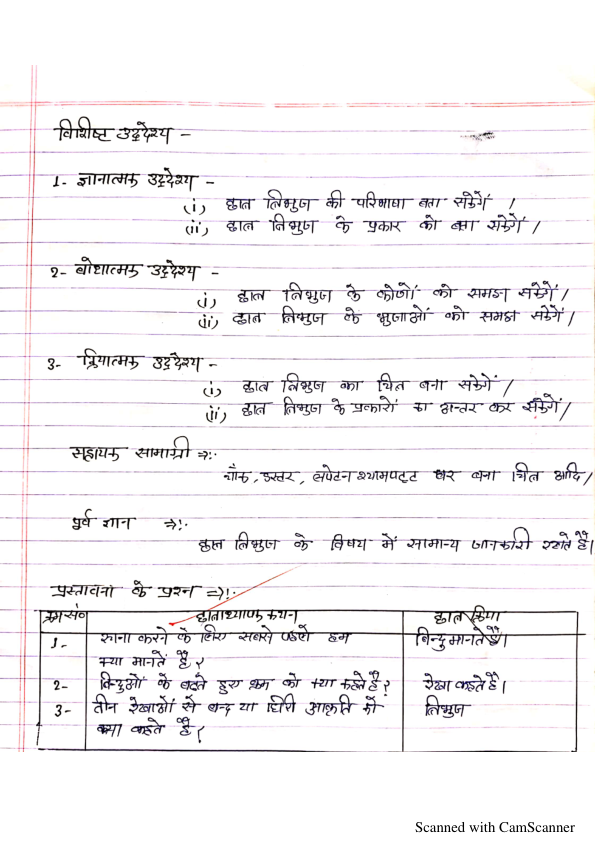 विशिष्ट उद्देश्य -
1- ज्ञानात्मक उद्देश्य -
(i) छात्र त्रिभुज की परिभाषा बता सकेंगें ।
(ii) छात्र त्रिभुज के प्रकार को बता सकेंगें ।
2- बोधात्मक उद्देश्य -
(i) छात्र त्रिभुज के कोणों को समझ सकेंगें ।
(ii) छात्र त्रिभुज के भुजाओं को समझ सकेंगें ।
3- क्रियात्मक उद्देश्य -
(i) छात्र त्रिभुज का चित्र बना सकेंगें ।
(ii) छात्र त्रिभुज के प्रकारों का अन्तर कर सकेंगें ।
सहायक सामाग्री ⇒:-
चौक, डस्टर, लपेटन श्यामपट्ट पर बना चित्र आदि ।
पूर्व ज्ञान ⇒:-
छात्र त्रिभुज के विषय में सामान्य जानकारी रखते हैं।
प्रस्तावना के प्रश्न ⇒:-
क्रम सं० छात्राध्यापक कथन छात्र क्रिया
1- करने के लिए सबसे पहले हम बिन्दु मानते हैं।
क्या मानतें हैं ?
2- बिन्दुओं के बढ़ते हुए क्रम को क्या कहते हैं ? रेखा कहते हैं।
3- तीन रेखाओं से बन्द या घिरी आकृति को त्रिभुज
क्या कहते हैं ?
Scanned with CamScanner